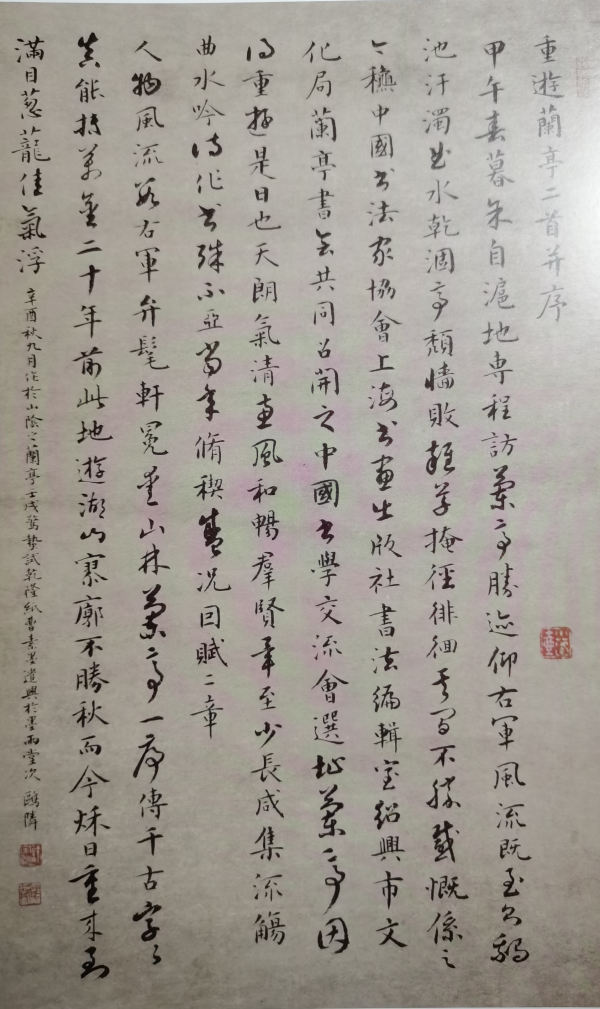 重遊蘭亭二首并序
甲午春暮余自滬地専程訪蘭亭勝迹仰右軍風流既至也鵝
池汙濁曲水乾涸亭頹牆敗雜草掩徑徘徊其間不勝感慨係之
今穐中國書法家協會上海書畫出版社書法編輯室紹興市文
化局蘭亭書會共同召開之中國書學交流會選址蘭亭因
得重遊是日也天朗氣清惠風和暢羣賢畢至少長咸集流觴
曲水吟詩作書殊不亞當年脩稧盛況因賦二章
人物風流數右軍弁髦軒冕愛山林蘭亭一序傳千古字字
真能抵萬金二十年前此地遊湖山寥廓不勝秋而今秌日重來到
滿目蔥蘢佳氣浮 辛酉秋九月作於山陰之蘭亭壬戌驚蟄試乾隆紙曹素墨遣興於墨雨堂次 鷗隣